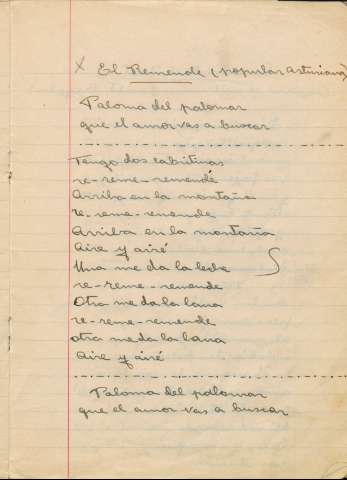 X El Remende (popular asturiana)
Paloma del palomar
que el amor vas a buscar
Tengo dos cabitinas
re-reme-remendé
Arriba en la montaña
re-reme-remende
Arriba en la montaña
Aire y airé
Una me da la leche
re-reme-remende
Otra me da la lana
re-reme-remende
otra me da la lana
Aire y airé
Paloma del palomar
que el amor vas a buscar